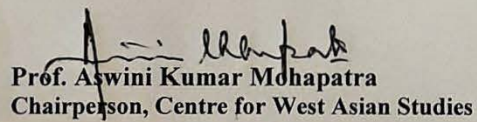 Prof. Aswini Kumar Mohapatra
Chairperson, Centre for West Asian Studies